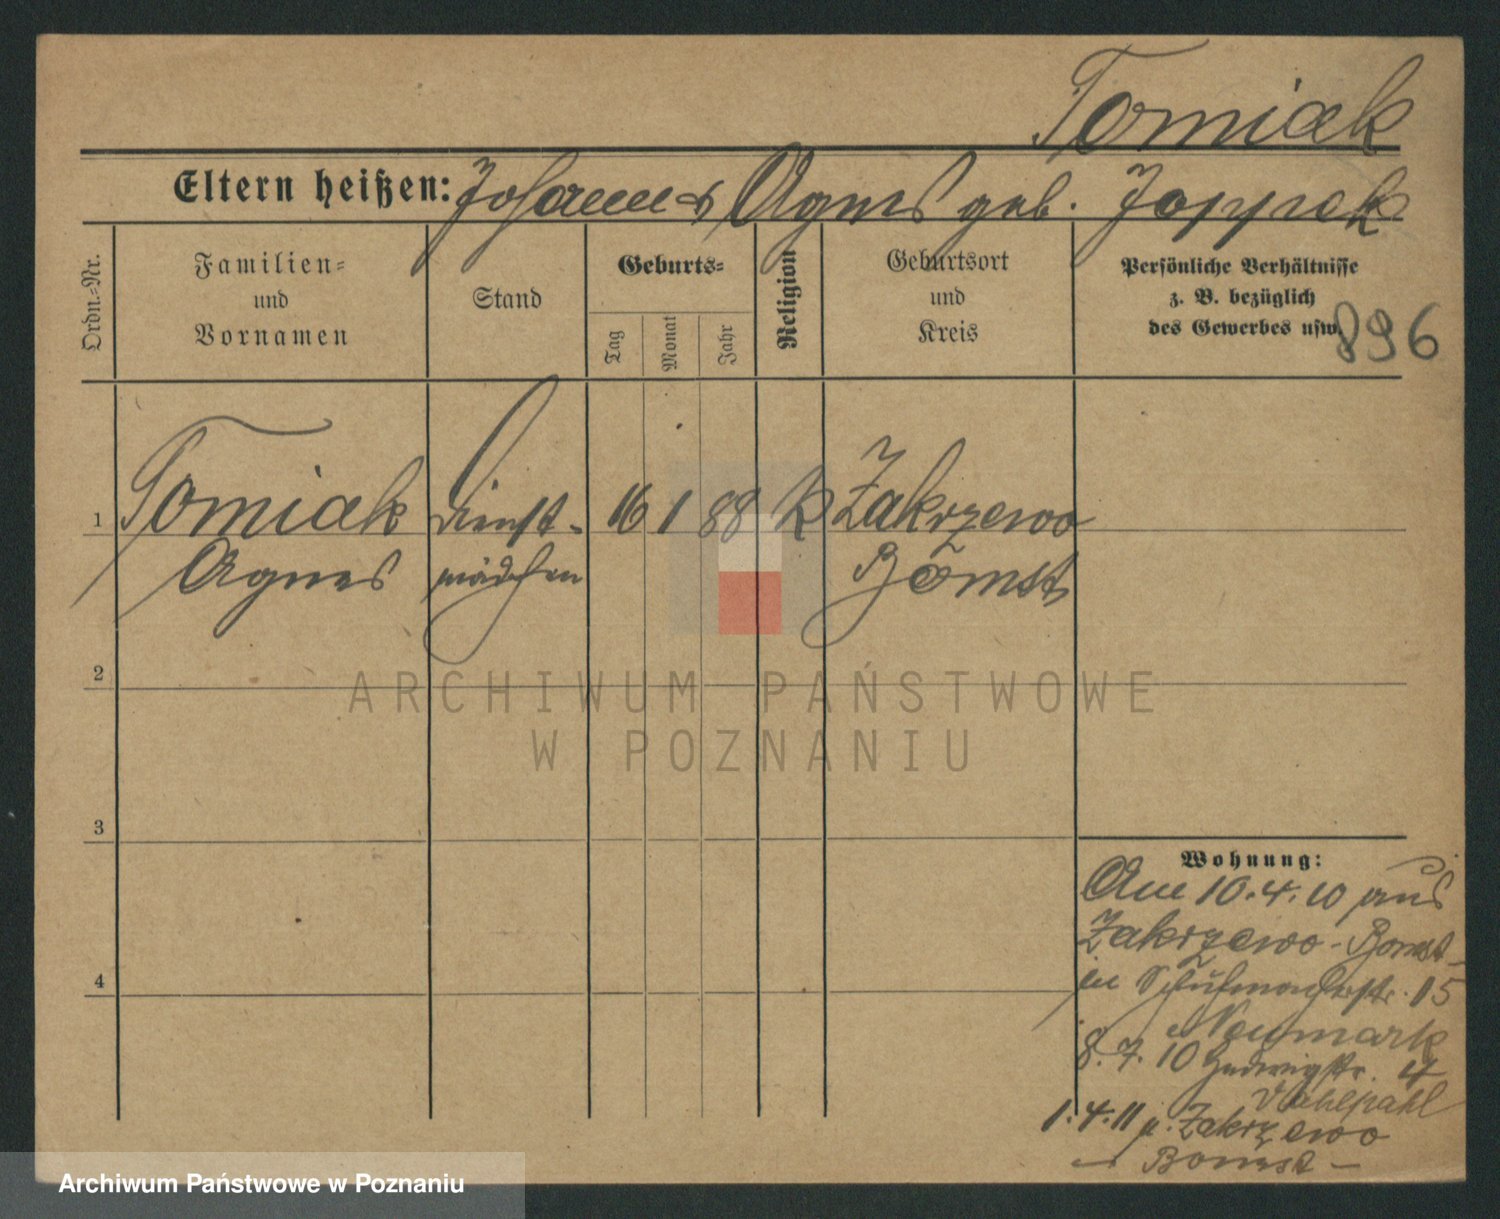 Tomiak
Eltern heißen: Johann & Agnes geb. Joppek
Ordn.-Nr.
Familien-
und
Vornamen
Stand
Geburts-
Tag
Monat
Jahr
Religion
Geburtsort
und
Kreis
Persönliche Verhältnisse
z. B. bezüglich
des Gewerbes usw.
896
1 Tomiak Dienst- 16 1 88 K Zakrzewo
Agnes mädchen Bomst
2
3
4
ARCHIWUM PAŃSTWOWE
W POZNANIU
Wohnung:
Am 10.4.10 aus
Zakrzewo-Bomst-
in Schuhmacherstr. 15
Neumark
8. 7. 10 Hedwigstr. 4
1.4.11 n. Zakrzewo
Bomst –
Archiwum Państwowe w Poznaniu